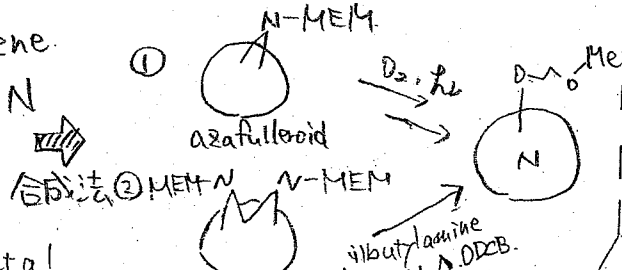 ene
N
合成法
① N-MEM
azafulleroid
O₂, hν
O O Me
N
② MEM-N N-MEM
butylamine
Δ ODCB.
tal